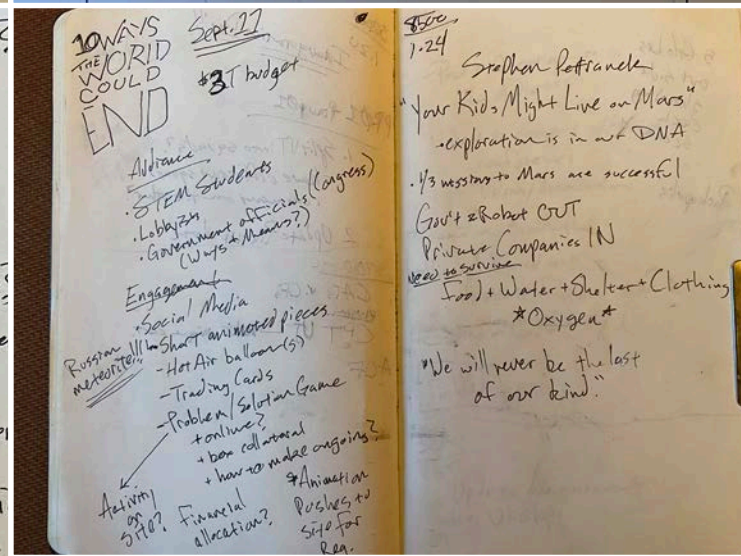 10 WAYS
THE
WORLD
COULD
END
Sept. 27
budget
Audience
• STEM Students
• Lobbyists
• Government officials (Congress)
(Ways + Means?)
Engagement
• Social Media
- Short animated pieces
Russian
meteorite!!!
- Hot Air balloon(s)
- Trading Cards
- Problem/Solution Game
+ online?
+ box collateral
+ how to make ongoing?
Activity
on
site?
Financial
allocation?
*Animation
Pushes to
site for
Reg.
1.24
Stephen Petranek
"Your Kids Might Live on Mars"
• exploration is in our DNA
• 1/3 missions to Mars are successful
Gov't & Robot OUT
Private Companies IN
need to survive
Food + Water + Shelter + Clothing
*Oxygen*
"We will never be the last
of our kind."